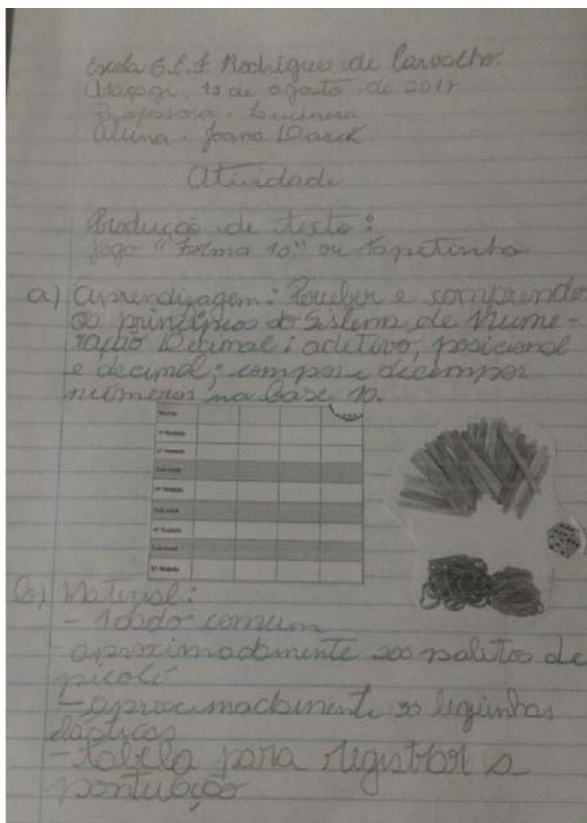 Escola E.E.F Rodrigues de Carvalho.
Araçagi, 10 de agosto de 2017
Professora: Lucinera
Aluna: Joana Darck
Atividade
Produção de texto:
Jogo "Forma 10" ou tapetinho
a) Aprendizagem: Perceber e comprender
os princípios do Sistema de Nume-
ração Decimal: aditivo, posicional
e decimal; compor e decompor
números na base 10.
1ª Rodada
2ª Rodada
Sub-total
3ª Rodada
Sub-total
4ª Rodada
Sub-total
5ª Rodada
b) Material:
- 1 dado comum
- aproximadamente 200 palitos de
picolé
- aproximadamente 30 liguinhas
elásticas
- tabela para registrar a
pontuação